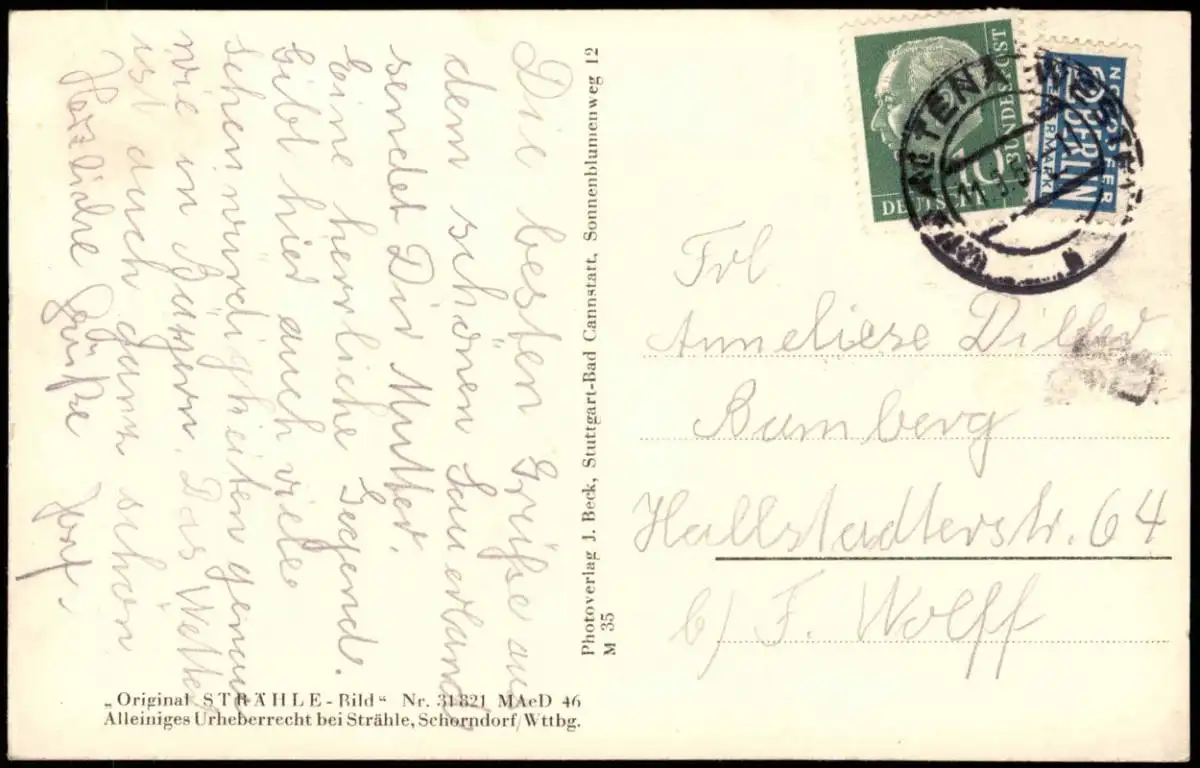 Die besten Grüße aus
dem schönen Sauerland
sendet Dir Mutter.
Eine herrliche Gegend.
Gibt hier auch viele
Sehenswürdigkeiten genau
wie in Bayern. Das Wetter
ist auch ganz schön
Herzliche Grüße
Photoverlag J. Beck, Stuttgart-Bad Cannstatt, Sonnenblumenweg 12
M 35
„Original STRÄHLE-Bild“ Nr. 31821 MAeD 46
Alleiniges Urheberrecht bei Strähle, Schorndorf/Wttbg.
10
DEUTSCHE BUNDESPOST
NOTOPFER
2 BERLIN
STEUERMARKE
ALTENA
Frl
Anneliese Diller
Bamberg
Hallstadterstr. 64
b/ F. Wolff